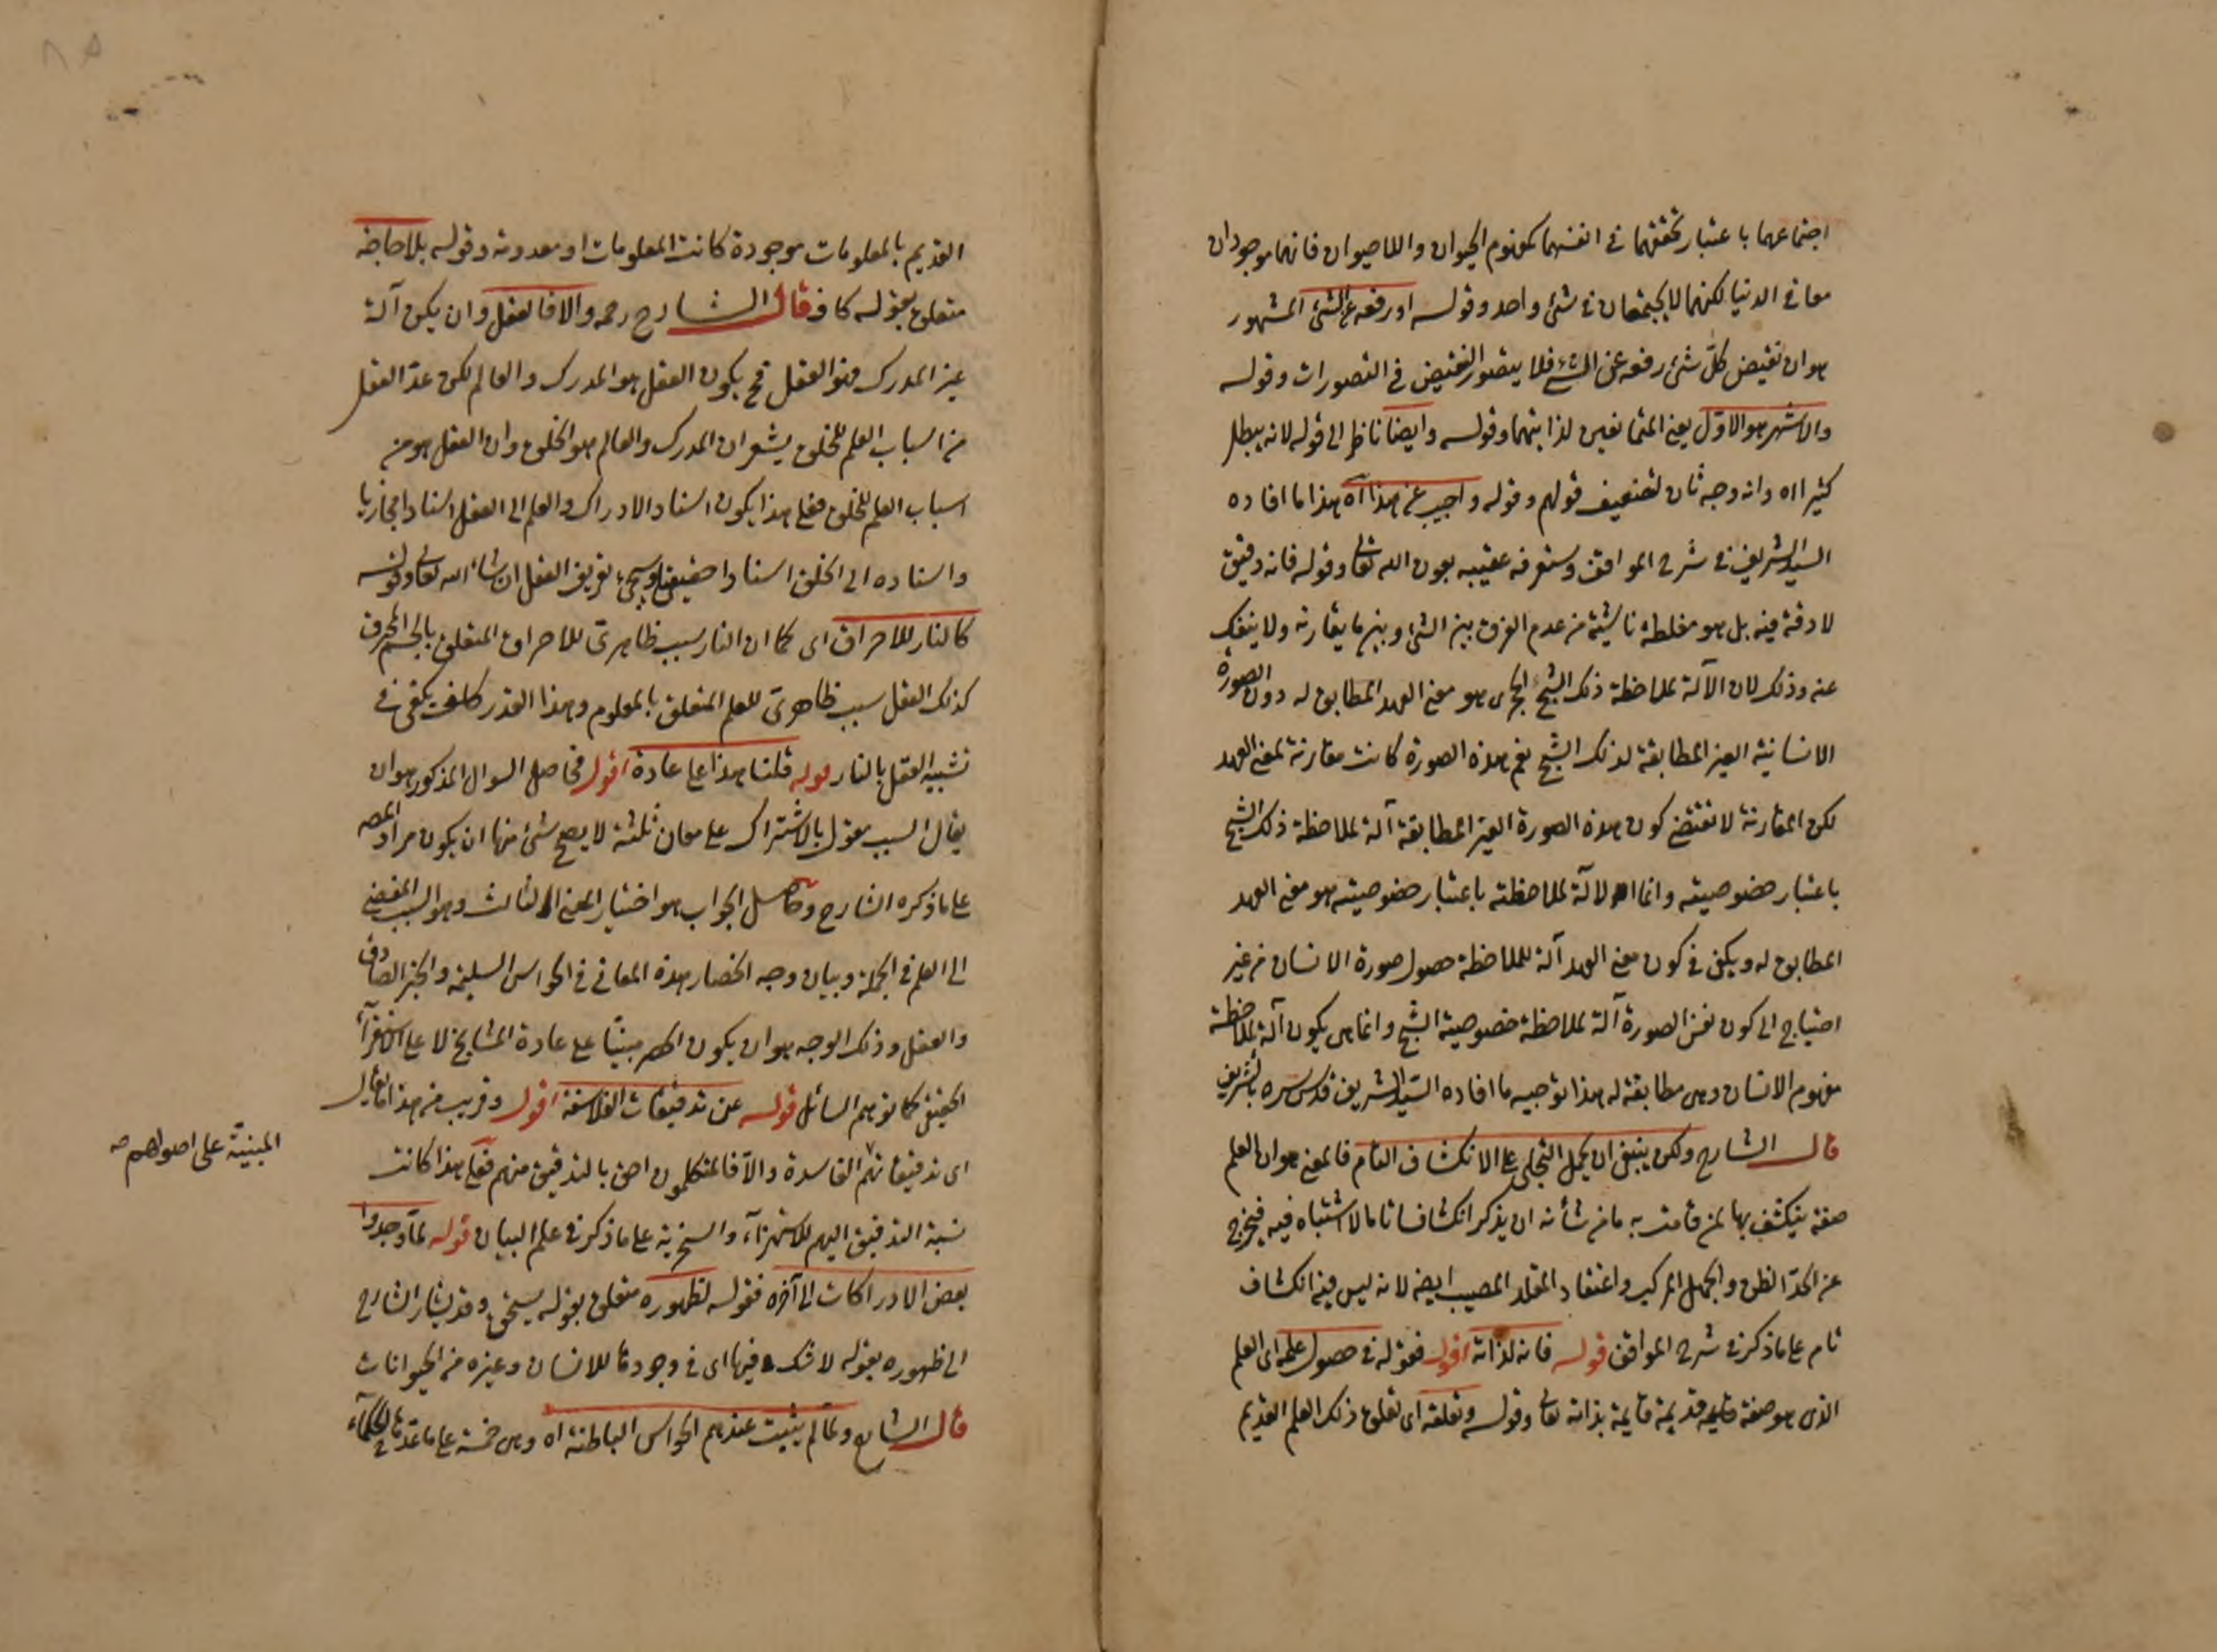 اجتماعهما باعتبار تحققهما في انفسهما كمفهوم الحيوان واللاحيوان فانهما موجودان
معا في الدنيا لكنهما لا يجتمعان في شئ واحد وقوله او رفعه عن الشئ المشهور
هو ان نقيض كل شئ رفعه عن الشئ فلا يتصور النقيض في التصورات وقوله
والاشهر هو الاول يعني المتمانعين لذاتيهما وقوله وايضا ناظر الى قوله لانه يبطل
كثيرا اه وانه وجه ثان لتضعيف قولهم وقوله واجيب عن هذا اه هذا ما افاده
السيد الشريف في شرح المواقف وستعرفه عقيبه بعون الله تعالى وقوله فانه دقيق
لا دقة فيه بل هو مغلطة ناشئة من عدم الفرق بين الشئ وبين ما يقارنه ولا ينفك
عنه وذلك لان الآلة لملاحظة ذلك الشبح الحجرى هو معنى العهد المطابق له دون الصورة
الانسانية الغير المطابقة لذلك الشبح نعم هذه الصورة كانت مقارنة لمعنى العهد
لكن المقارنة لا تقتضي كون هذه الصورة الغير المطابقة آلة لملاحظة ذلك الشبح
باعتبار خصوصيته وانما الآلة لملاحظته باعتبار خصوصيته هو معنى العهد
المطابق له ويكفي في كون معنى العهد آلة للملاحظة حصول صورة الانسان من غير
احتياج الى كون نفس الصورة آلة لملاحظة خصوصية الشبح وانما هى يكون آلة لملاحظة
مفهوم الانسان وهى مطابقة له هذا توجيه ما افاده السيد الشريف قدس سره بالشريف
قال الشارح ولكن ينبغي ان يحمل التجلى على الانكشاف التام فالمعنى هو ان العلم
صفة ينكشف بها لمن قامت به ما من شأنه ان يذكر انكشافا تاما لا اشتباه فيه فيخرج
عن الحد الظن والجهل المركب واعتقاد المقلد المصيب ايضا لانه ليس فيه انكشاف
تام على ما ذكر في شرح المواقف قوله فانه لذاته اقول فقوله في حصول علمه اى العلم
الذى هو صفة قديمة قايمة بذاته تعالى وقوله وتعلقه اى تعلق ذلك العلم القديم
القديم بالمعلومات موجودة كانت المعلومات او معدومة وقوله بلا حاجة
متعلق بقوله كاف قال الشارح رحمه والا فالعقل وان يكن آلة
غير المدرك فهو العقل فح يكون العقل هو المدرك والعالم لكن عد العقل
من اسباب العلم للخلق يشعر ان المدرك والعالم هو الخلق وان العقل هو من
اسباب العلم للخلق فعلى هذا يكون اسناد الادراك والعلم الى العقل اسنادا مجازيا
واسناده الى الخلق اسنادا حقيقيا وسيجئ تعريف العقل ان شاء الله تعالى وقوله
كالنار للاحراق اى كما ان النار سبب ظاهرى للاحراق المتعلق بالجسم المحرق
كذلك العقل سبب ظاهرى للعلم المتعلق بالمعلوم وهذا القدر يكفى في
تشبيه العقل بالنار قوله قلنا هذا على عادة اقول فحاصل السوال المذكور هو ان
يقال السبب مقول بالاشتراك على معان ثلثة لا يصح شئ منها ان يكون مراد المص
على ما ذكره الشارح وحاصل الجواب هو اختيار المعنى الثالث وهو السبب المفضى
الى العلم في الجملة وبيان وجه انحصار هذه المعانى في الحواس السليمة والخبر الصادق
والعقل وذلك الوجه هو ان يكون الحصر مبنيا على عادة المشايخ لا على استقراء
الحقيقى كما توهم السائل قوله عن تدقيقات الفلاسفة اقول وقريب من هذا ما يقال
اى تدقيقاتهم الفاسدة والا فالمتكلمون احق بالتدقيق منهم فعلى هذا كانت
المبنية على اصولهم صح
نسبة التدقيق اليهم للاستهزاء والسخرية على ما ذكر في علم البيان قوله لما وجدوا
بعض الادراكات الى آخره فقوله لظهوره متعلق بقوله يستحق وقد يشار الشارح
الى ظهوره بقوله لا شك فيها اى في وجودها للانسان وغيره من الحيوانات
قال الشارح ولما لم يثبت عندهم الحواس الباطنة اه وهى خمسة على ما عدها الحكماء